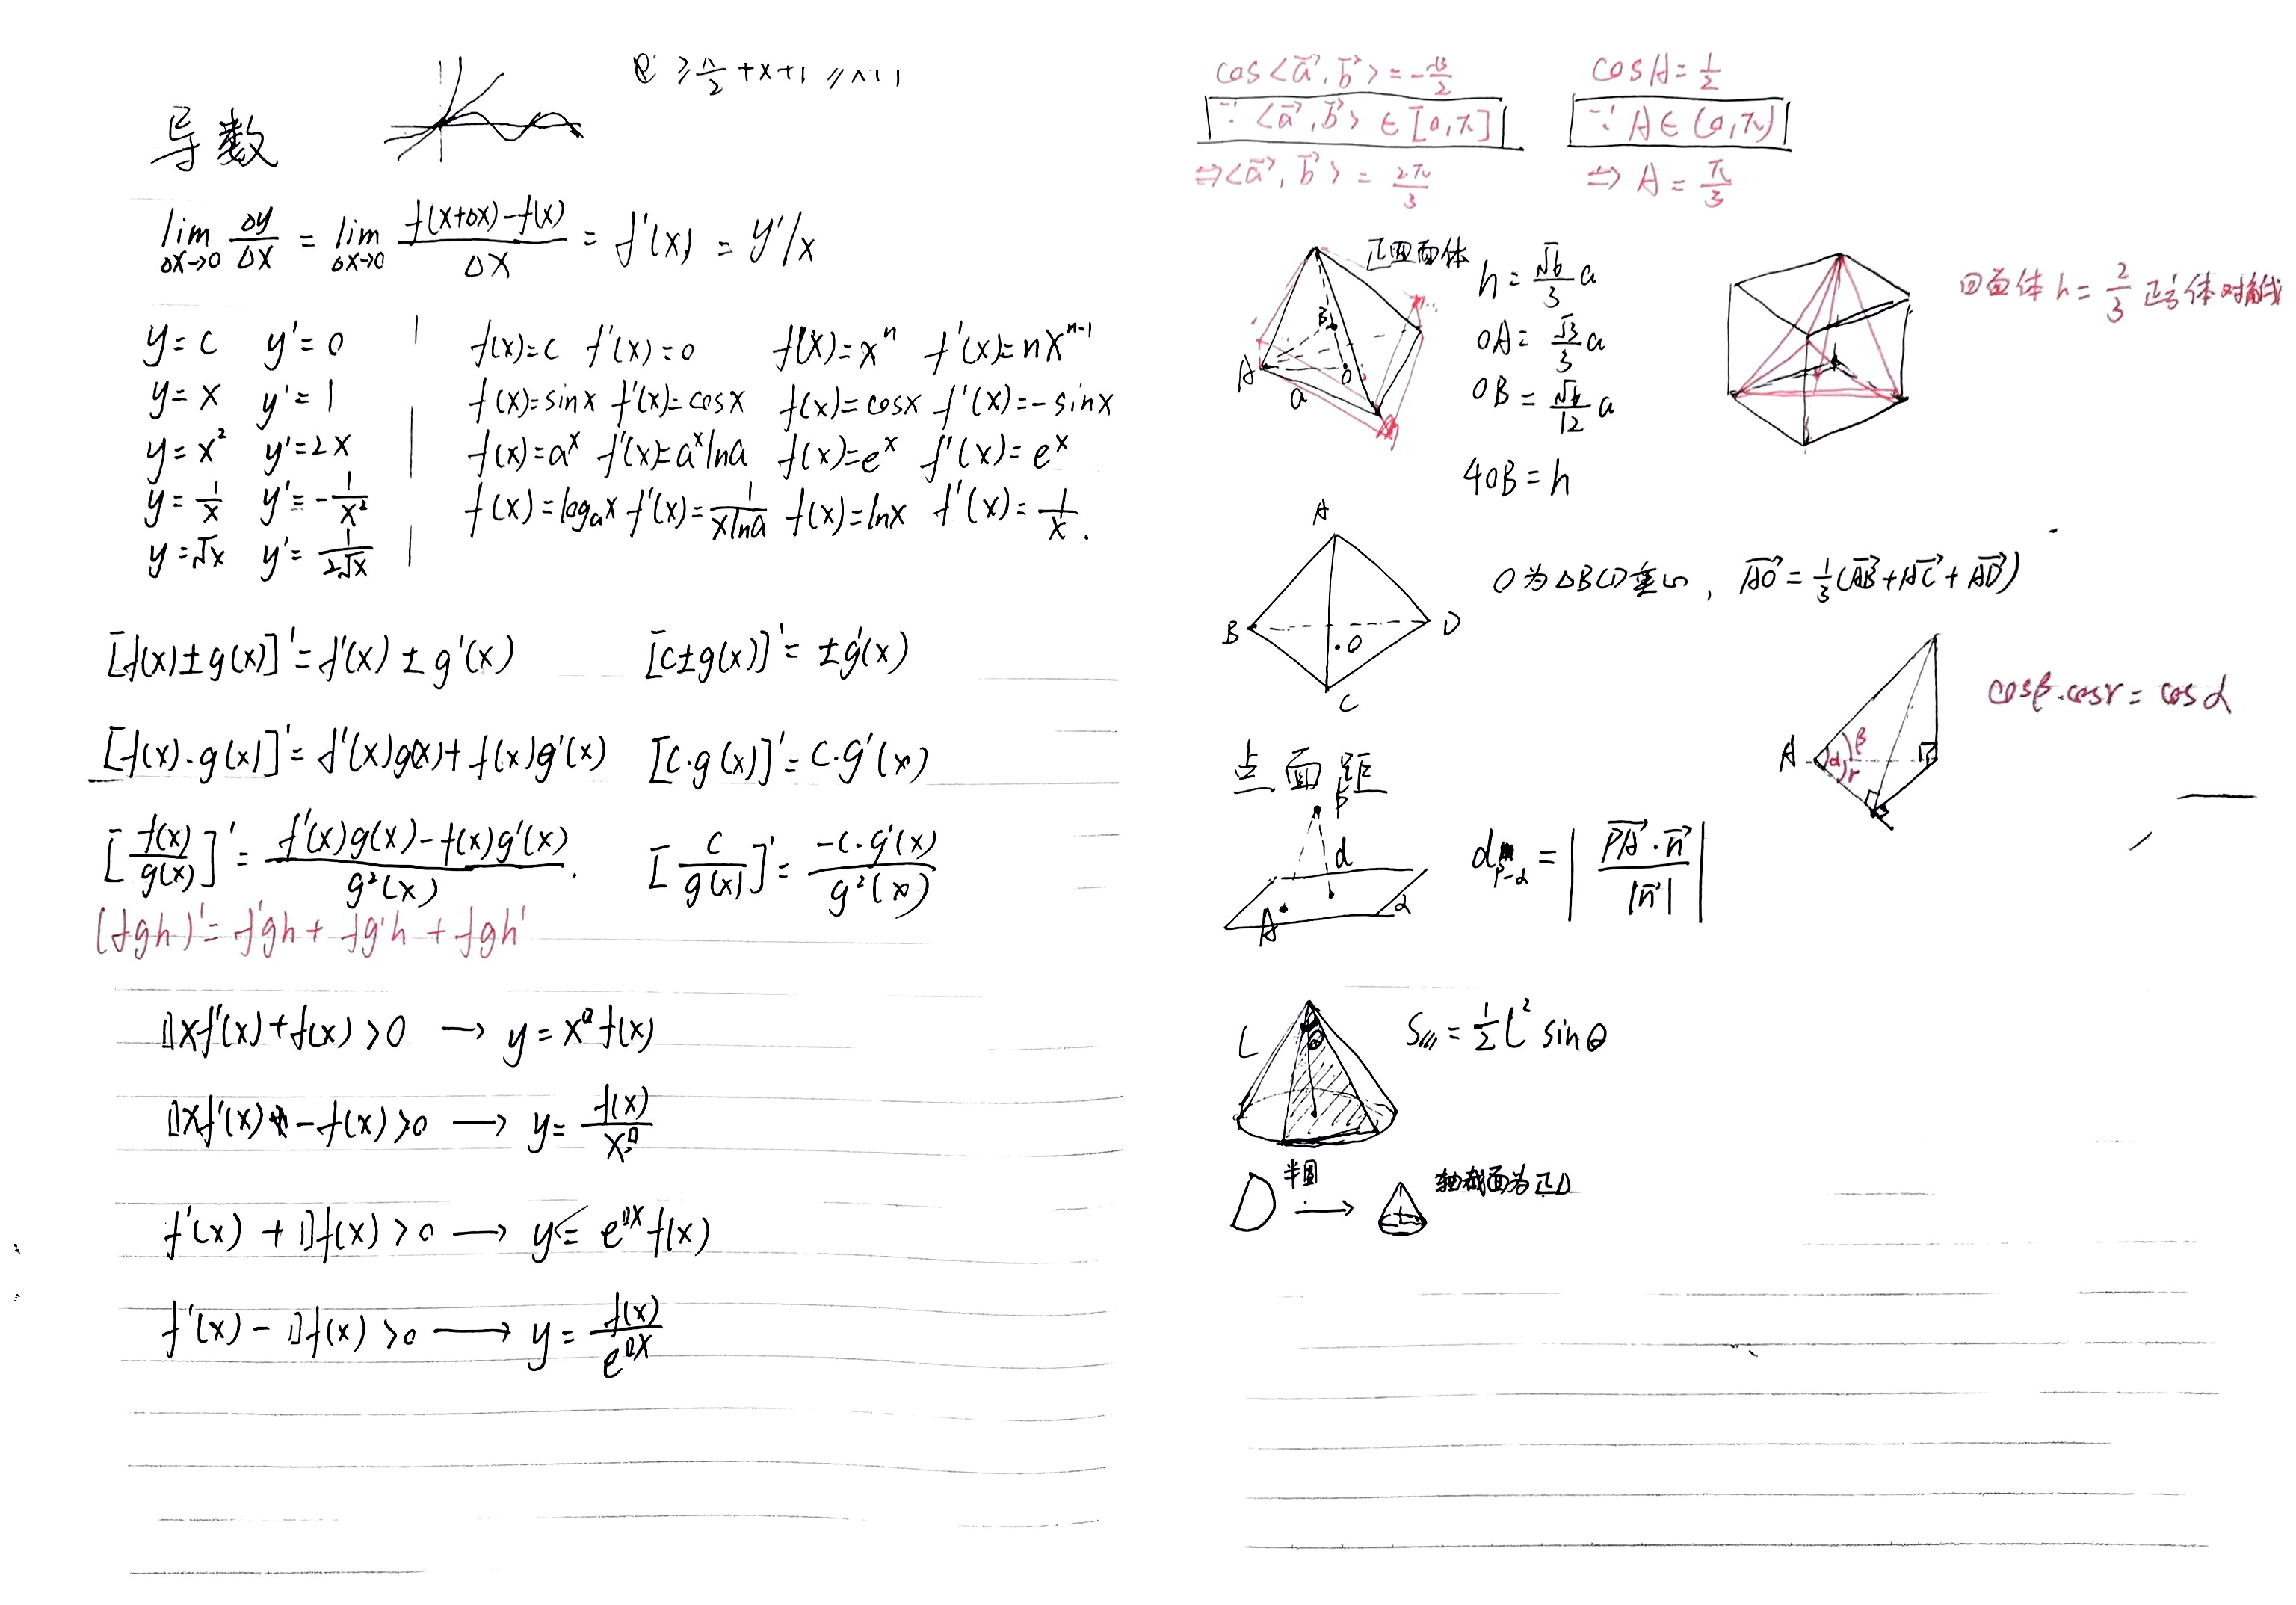 导数
≥ x²/2 + x + 1 ≥ x + 1
lim_{Δx→0} Δy/Δx = lim_{Δx→0} (f(x+Δx)-f(x))/Δx = f'(x) = y'/x
y=c y'=0
y=x y'=1
y=x² y'=2x
y=1/x y'=-1/x²
y=√x y'=1/(2√x)
f(x)=c f'(x)=0 f(x)=xⁿ f'(x)=nxⁿ⁻¹
f(x)=sinx f'(x)=cosx f(x)=cosx f'(x)=-sinx
f(x)=aˣ f'(x)=aˣlna f(x)=eˣ f'(x)=eˣ
f(x)=logₐx f'(x)=1/(xlna) f(x)=lnx f'(x)=1/x.
[f(x)±g(x)]'=f'(x)±g'(x) [c±g(x)]'=±g'(x)
[f(x)·g(x)]'=f'(x)g(x)+f(x)g'(x) [c·g(x)]'=c·g'(x)
[f(x)/g(x)]'=(f'(x)g(x)-f(x)g'(x))/g²(x). [c/g(x)]'=(-c·g'(x))/g²(x)
(fgh)'=f'gh+fg'h+fgh'
□xf'(x)+f(x)>0 → y=x^□ f(x)
□xf'(x)-f(x)>0 → y=f(x)/x^□
f'(x)+□f(x)>0 → y=e^{□x} f(x)
f'(x)-□f(x)>0 → y=f(x)/e^{□x}
cos<a⃗,b⃗>=-√3/2
∵<a⃗,b⃗>∈[0,π]
⇒<a⃗,b⃗>=2π/3
cosA=1/2
∵A∈(0,π)
⇒A=π/3
正四面体
B
A
O
a
h=√6/3 a
OA=√3/3 a
OB=√6/12 a
4OB=h
四面体h=2/3正方体对角线
A
B
D
O
C
O为△BCD重心, AO⃗=1/3(AB⃗+AC⃗+AD⃗)
A
α
β
r
cosβ·cosr=cosα
点面距
P
d
A
α
d_{P-α}=|PA⃗·n⃗/|n⃗||
L
θ
S=1/2 l² sinθ
半圆
轴截面为正△